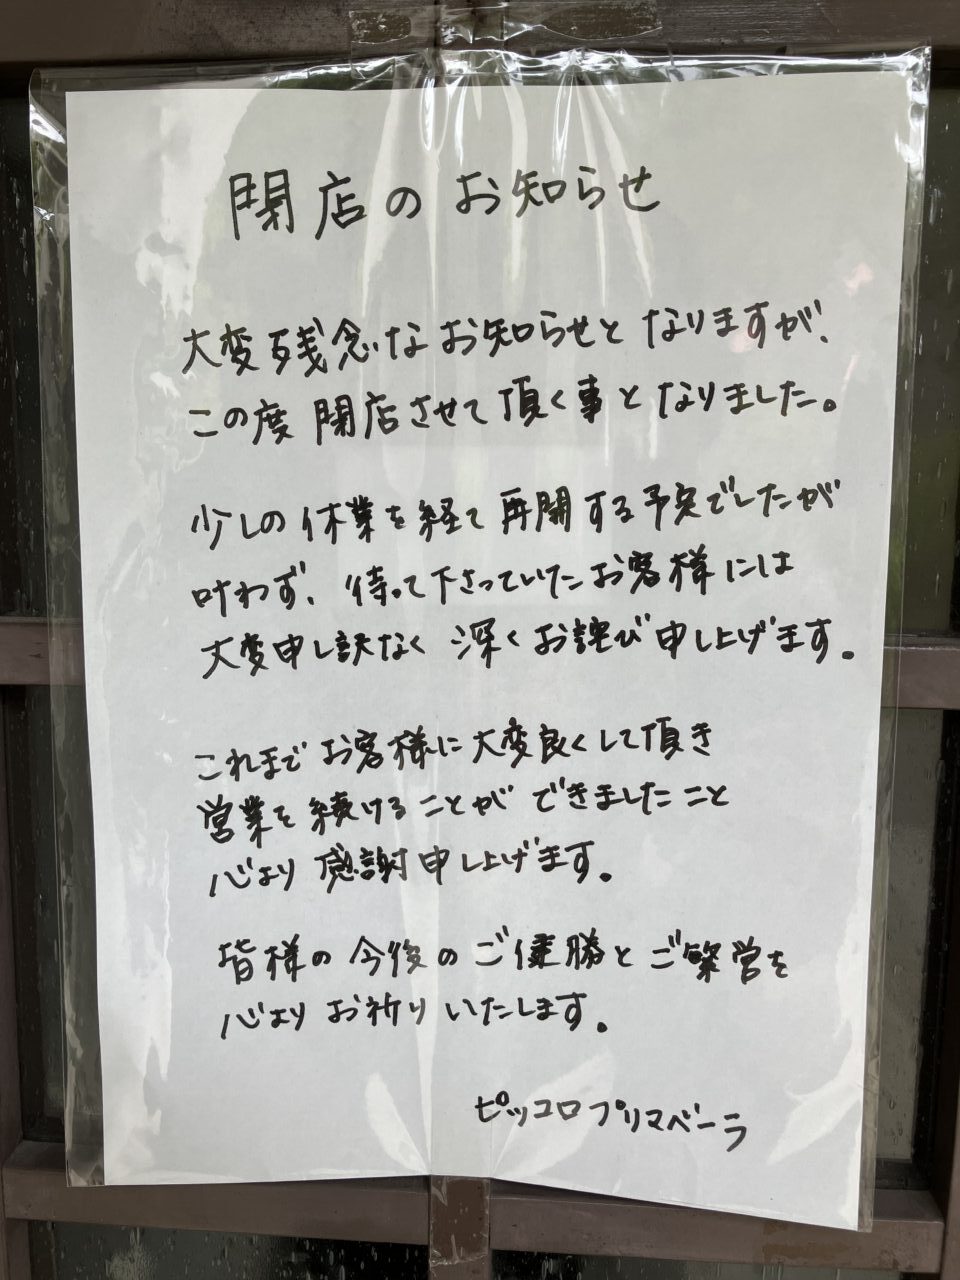 閉店のお知らせ
大変残念なお知らせとなりますが、
この度閉店させて頂く事となりました。
少しの休業を経て再開する予定でしたが
叶わず、待って下さっていたお客様には
大変申し訳なく深くお詫び申し上げます。
これまでお客様に大変良くして頂き
営業を続けることができましたこと
心より感謝申し上げます。
皆様の今後のご健勝とご繁営を
心よりお祈りいたします。
ピッコロプリマベーラ